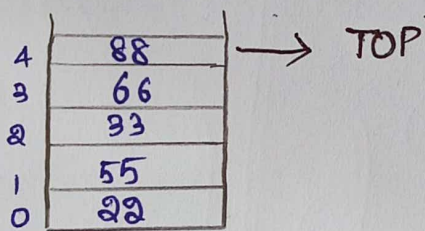 4 88 → TOP
3 66
2 33
1 55
0 22